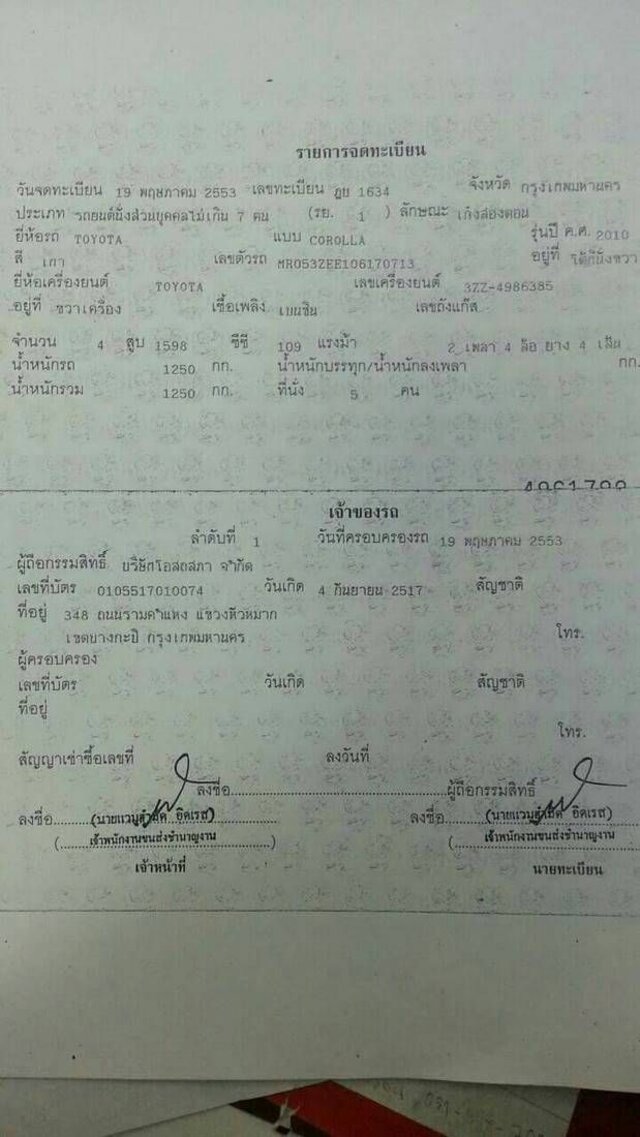 รายการจดทะเบียน
วันจดทะเบียน 19 พฤษภาคม 2553 เลขทะเบียน ฎย 1634 จังหวัด กรุงเทพมหานคร
ประเภท รถยนต์นั่งส่วนบุคคลไม่เกิน 7 คน (รย. 1 ) ลักษณะ เก๋งสองตอน
ยี่ห้อรถ TOYOTA แบบ COROLLA รุ่นปี ค.ศ. 2010
สี เทา เลขตัวรถ MR053ZEE106170713 อยู่ที่ ใต้ที่นั่งขวา
ยี่ห้อเครื่องยนต์ TOYOTA เลขเครื่องยนต์ 3ZZ-4986385
อยู่ที่ ขวาเครื่อง เชื้อเพลิง เบนซิน เลขถังแก๊ส
จำนวน 4 สูบ 1598 ซีซี 109 แรงม้า 2 เพลา 4 ล้อ ยาง 4 เส้น
น้ำหนักรถ 1250 กก. น้ำหนักบรรทุก/น้ำหนักลงเพลา กก.
น้ำหนักรวม 1250 กก. ที่นั่ง 5 คน
เจ้าของรถ
ลำดับที่ 1 วันที่ครอบครองรถ 19 พฤษภาคม 2553
ผู้ถือกรรมสิทธิ์ บริษัทโอสถสภา จำกัด
เลขที่บัตร 0105517010074 วันเกิด 4 กันยายน 2517 สัญชาติ
ที่อยู่ 348 ถนนรามคำแหง แขวงหัวหมาก
เขตบางกะปิ กรุงเทพมหานคร โทร.
ผู้ครอบครอง
เลขที่บัตร วันเกิด สัญชาติ
ที่อยู่
โทร.
สัญญาเช่าซื้อเลขที่ ลงวันที่
ลงชื่อ ผู้ถือกรรมสิทธิ์
ลงชื่อ ลงชื่อ
เจ้าพนักงานขนส่งชำนาญงาน เจ้าพนักงานขนส่งชำนาญงาน
เจ้าหน้าที่ นายทะเบียน